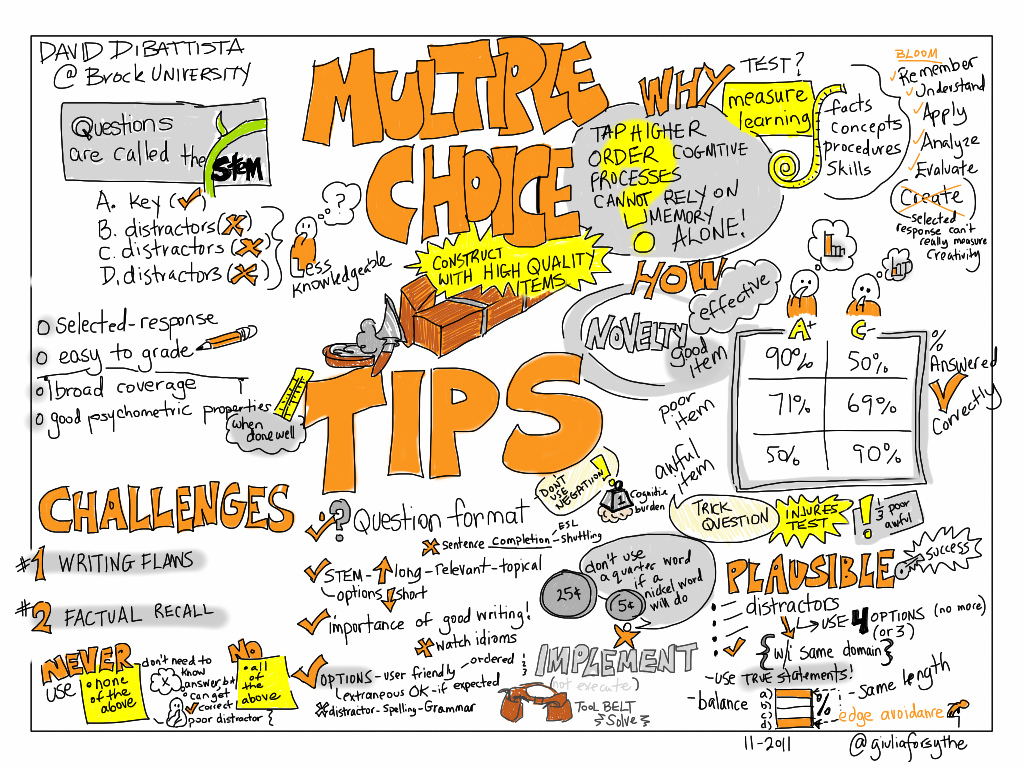 DAVID DIBATTISTA
@ BROCK UNIVERSITY
Questions
are called the
STEM
A. Key (✓)
B. distractors (X)
C. distractors (X)
D. distractors (X)
?
Less
knowledgeable
o Selected-response
o easy to grade
o broad coverage
o good psychometric properties
when
done well
MULTIPLE
CHOICE
CONSTRUCT
WITH HIGH QUALITY
ITEMS
TIPS
WHY
TEST?
measure
learning
facts
concepts
procedures
skills
TAP HIGHER
ORDER COGNITIVE
PROCESSES
CANNOT RELY ON
MEMORY
ALONE!
BLOOM
✓Remember
✓Understand
✓Apply
✓Analyze
✓Evaluate
Create
selected
response can't
really measure
creativity
HOW
effective
NOVELTY
good
item
poor
item
awful
item
A+ C-
90% 50%
71% 69%
50% 90%
%
Answered
✓
Correctly
TRICK
QUESTION
INJURES
TEST
!
1/3 poor
awful
CHALLENGES
#1 WRITING FLAWS
#2 FACTUAL RECALL
NEVER
USE
• none
of the
above
don't need to
know
answer, but
can get
✓ correct
poor distractor
X
NO
• all
of the
above
DON'T
USE
NEGATION
!
1
Cognitive
burden
✓ ? Question format
X Sentence completion - ESL
shuttling
✓ STEM - ↑ long - relevant - topical
options ↓ short
✓ Importance of good writing!
X watch idioms
✓ OPTIONS - user friendly
ordered
extraneous OK - if expected
X distractor - Spelling - Grammar
don't use
a quarter word
if a
nickel word
will do
25¢
5¢
IMPLEMENT
(not execute)
TOOL BELT
Solve
PLAUSIBLE
SUCCESS
distractors
USE 4 OPTIONS (no more)
(or 3)
✓ {w/i same domain}
- USE TRUE STATEMENTS!
- balance
a)
b)
c)
d)
%
- Same length
edge avoidance
11-2011
@giuliaforsythe